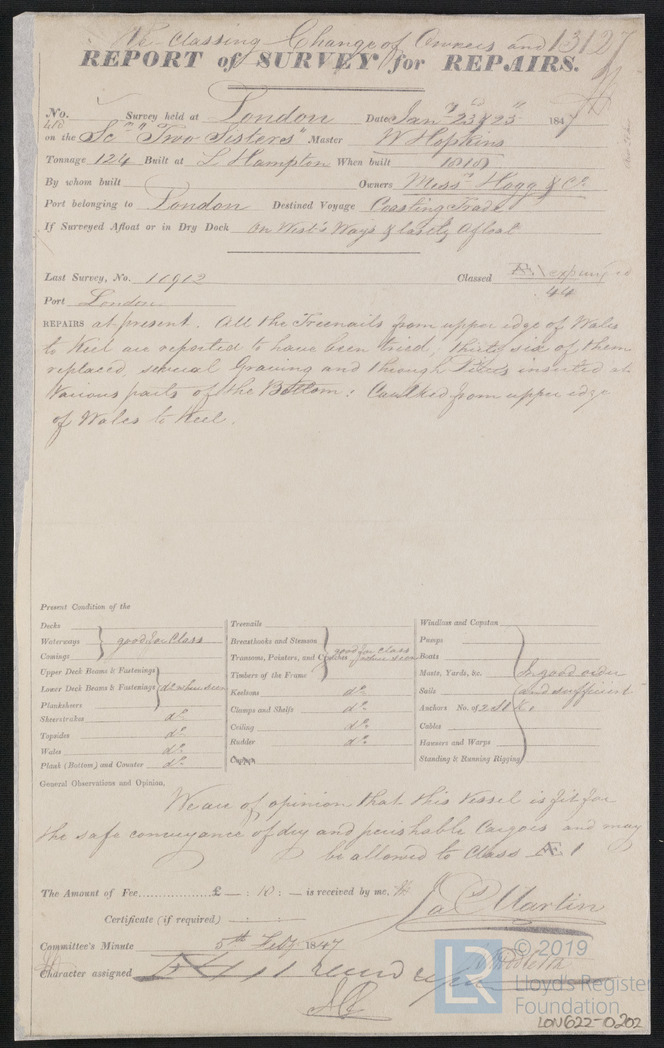 Re Classing Change of Owners and 13127
REPORT of SURVEY for REPAIRS.
No. 410 Survey held at London Date Jany 23 & 25 1847
on the Sr "Two Sisters" Master W Hopkins
Tonnage 124 Built at L Hampton When built 1818
By whom built Owners Messrs Hogg & Co.
Port belonging to London Destined Voyage Coasting Trade
If Surveyed Afloat or in Dry Dock On West's Ways & lastly Afloat
Last Survey, No. 11912 Classed Æ 1 expunged
44
Port London
REPAIRS at present. All the Treenails from upper edge of Wales
to Keel are reported to have been tried, thirty six of them
replaced several Graving and through Pieces inserted at
Various parts of the Bottom: Caulked from upper edge
of Wales to Keel.
Present Condition of the
Decks
Waterways good for Class
Comings
Upper Deck Beams & Fastenings
Lower Deck Beams & Fastenings do. when seen
Plansheers
Sheerstrakes do.
Topsides do.
Wales do.
Plank (Bottom) and Counter do.
Treenails
Breasthooks and Stemson
Transoms, Pointers, and Crutches good for class when seen
Timbers of the Frame
Keelsons do.
Clamps and Shelfs do.
Ceiling do.
Rudder do.
Copper
Windlass and Capstan
Pumps
Boats
Masts, Yards, &c. In good order
Sails and sufficient
Anchors No. of 2
Cables
Hawsers and Warps
Standing & Running Rigging
General Observations and Opinion.
We are of opinion that this Vessel is fit for
the safe conveyance of dry and perishable Cargoes and may
be allowed to Class Æ 1
The Amount of Fee............... £ — : 10 : — is received by me,
Jas Martin
Certificate (if required)
Committee's Minute 5th Feby 1847
Character assigned
© 2019
LR
Lloyd's Register
Foundation
LON622-0202